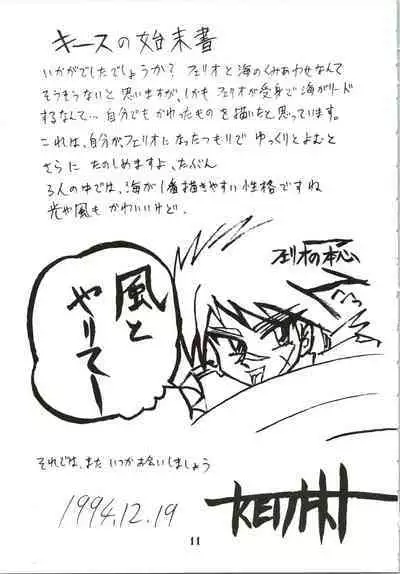 キースの始末書
いかがでしたでしょうか? フェリオと海のくみあわせなんて
そうそうないと思いますが、しかもフェリオが受身で海がリード
するなんて…自分でもかわったものを描いたと思っています。
これは、自分がフェリオになったつもりでゆっくりとよむと
さらにたのしめますよ、たぶん
3人の中では、海が1番描きやすい性格ですね
光や風もかわいいけど.
フェリオの本心
風と
やりてー
それでは、また いつかお会いしましょう
1994.12.19
11